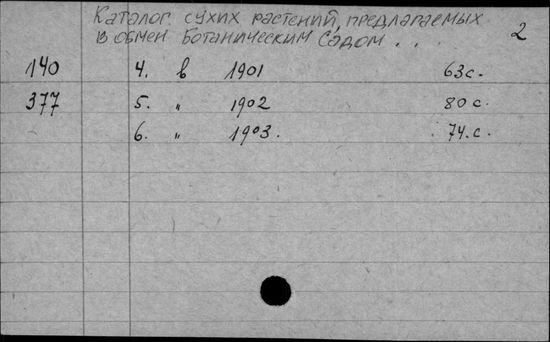 Каталог сухих растений, предлагаемых
в обмен Ботаническим Садом . . 2
140 4. в 1901 63 с.
377 5. " 1902 80 с.
6. " 1903. 74. с.